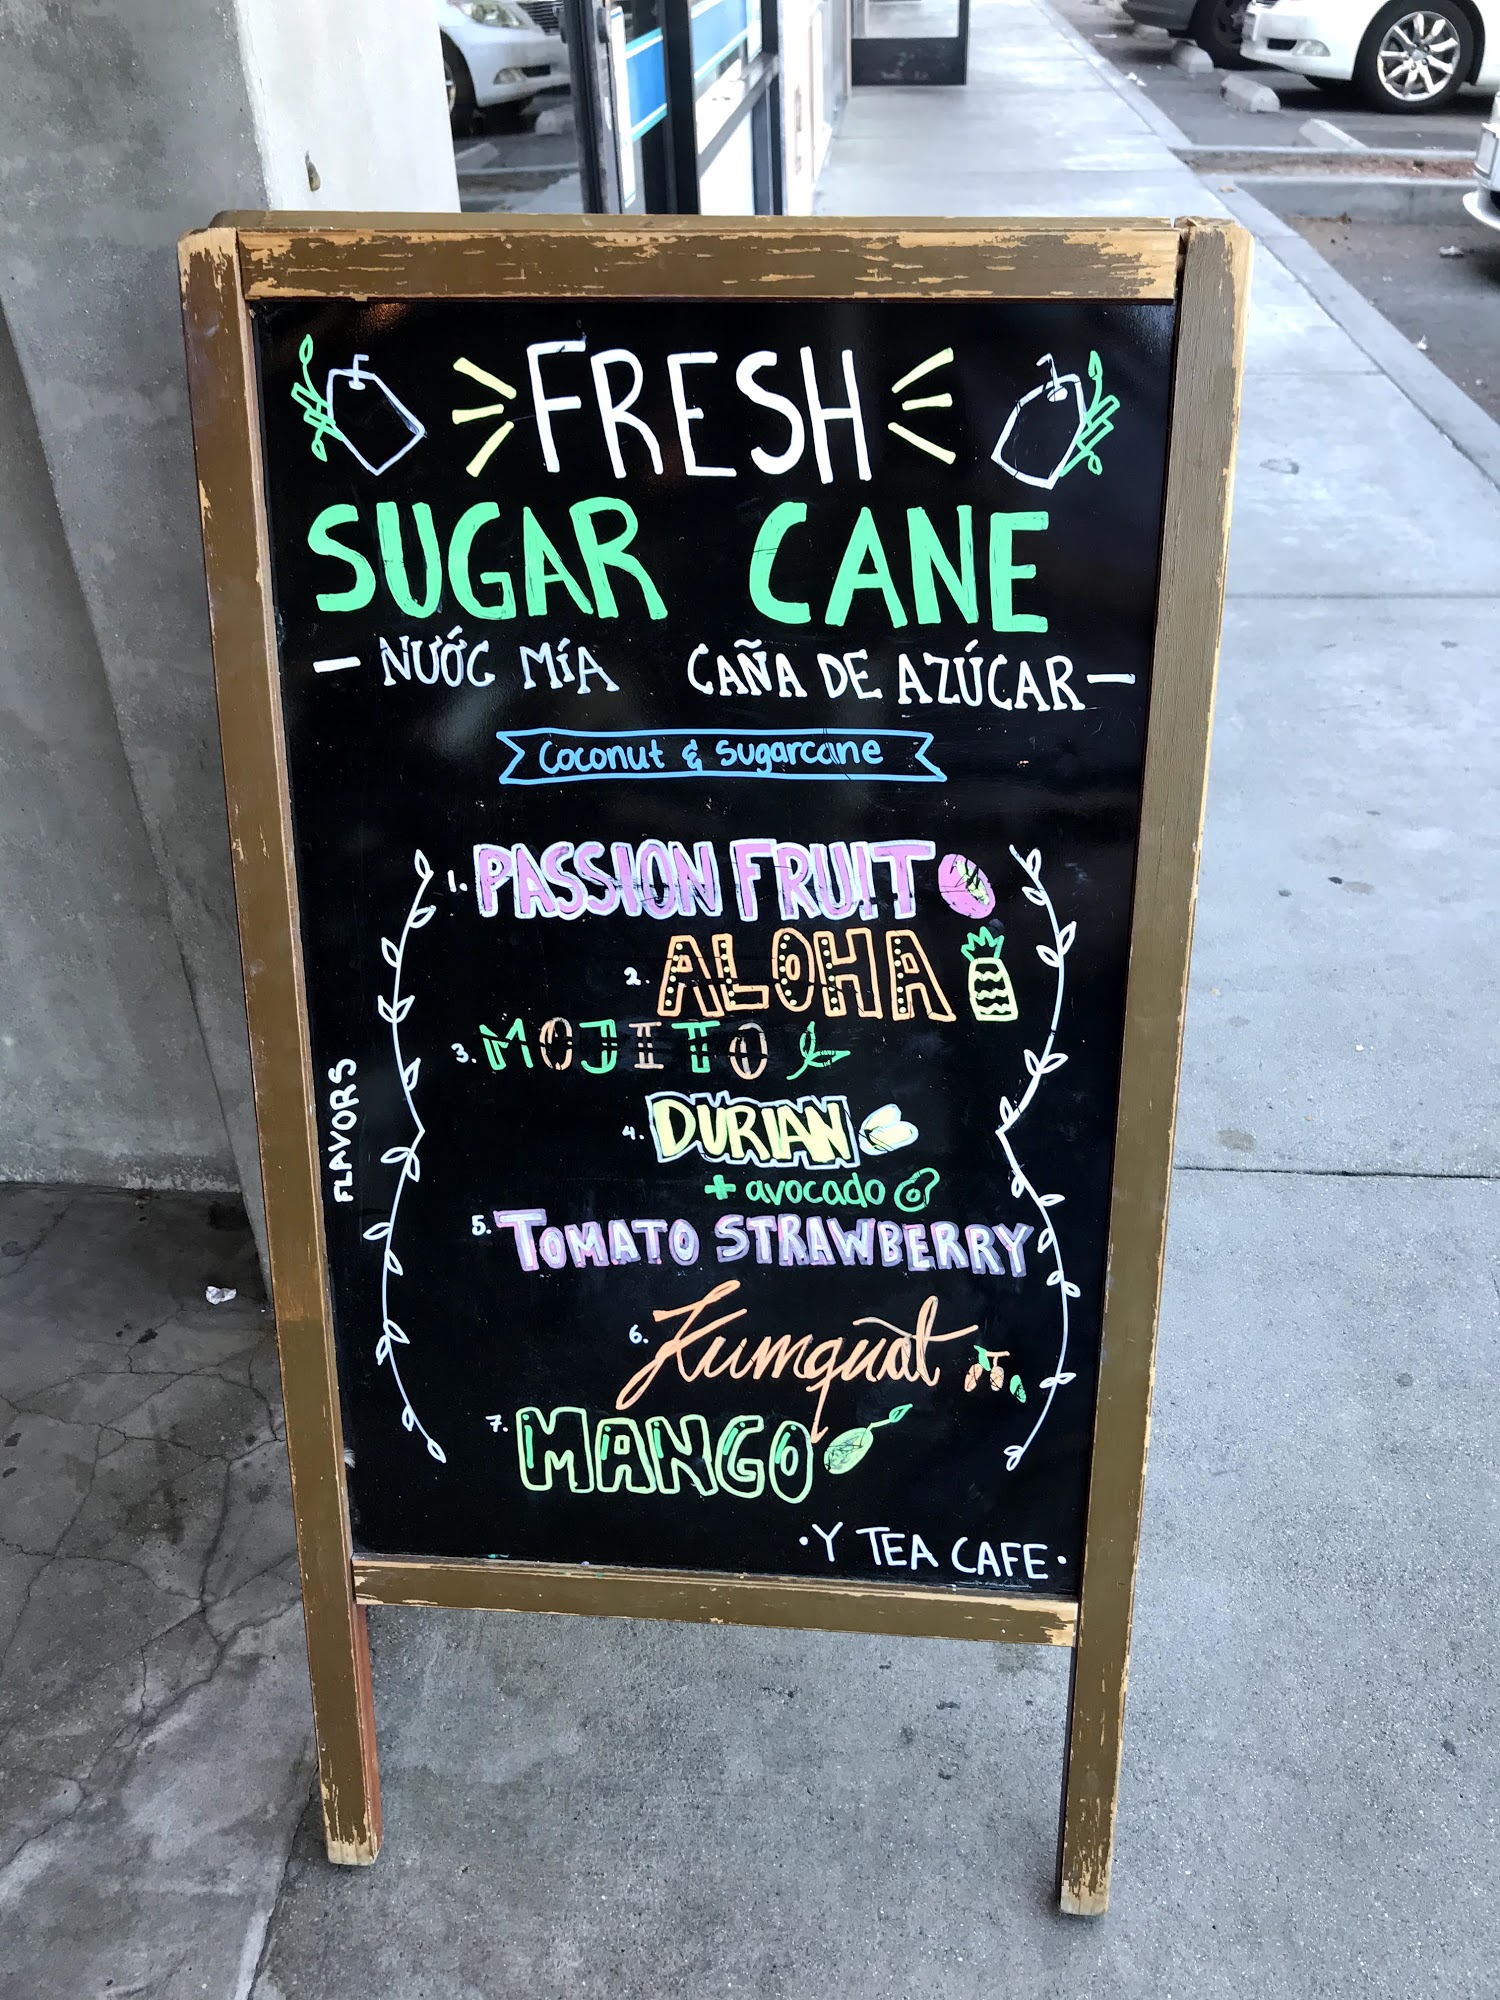 FRESH
SUGAR CANE
— NƯỚC MÍA CAÑA DE AZÚCAR —
Coconut & Sugarcane
FLAVORS
1. PASSION FRUIT
2. ALOHA
3. MOJITO
4. DURIAN
+ avocado
5. TOMATO STRAWBERRY
6. Kumquat
7. MANGO
·Y TEA CAFE·